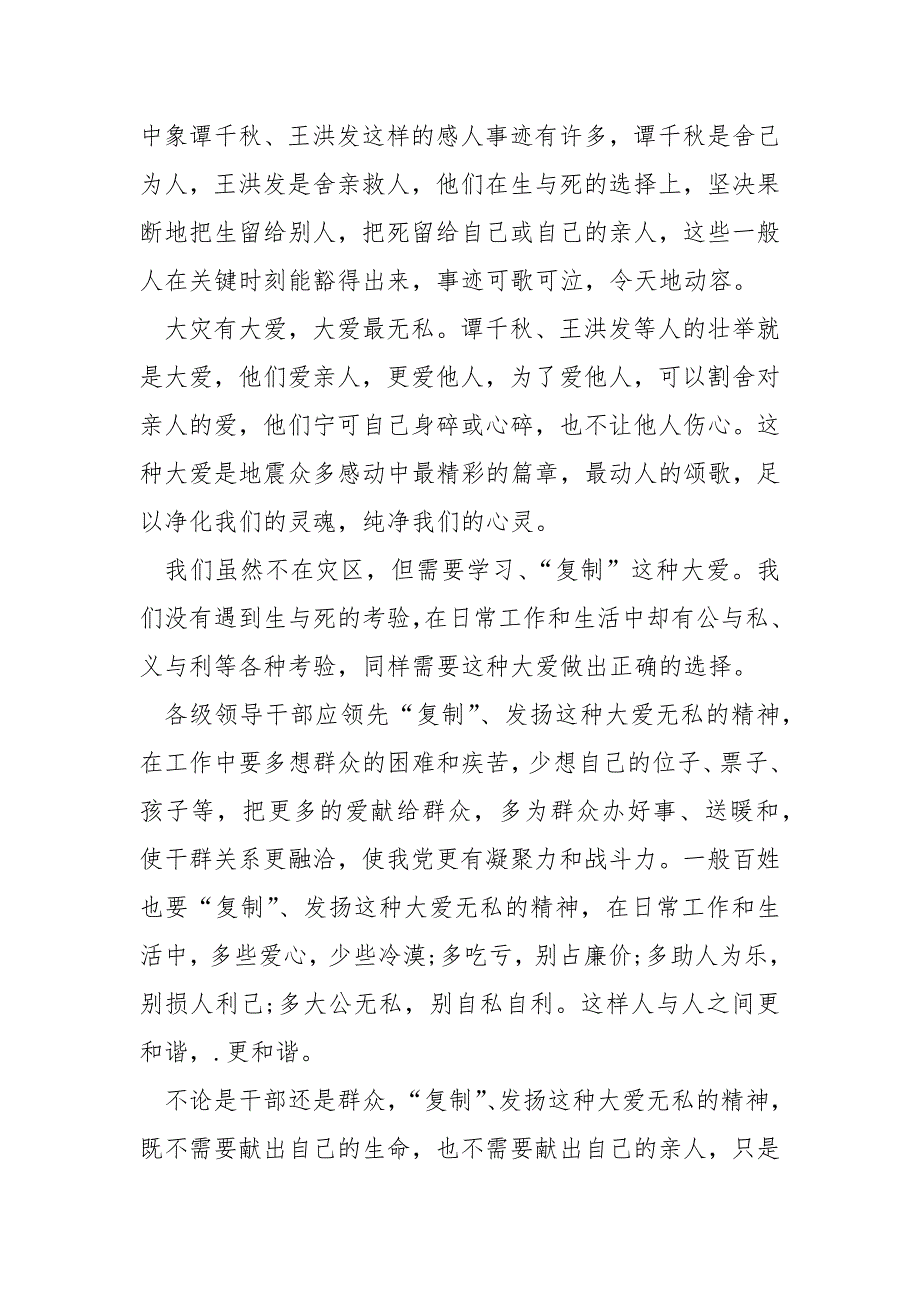 中象谭千秋、王洪发这样的感人事迹有许多，谭千秋是舍己
为人，王洪发是舍亲救人，他们在生与死的选择上，坚决果
断地把生留给别人，把死留给自己或自己的亲人，这些一般
人在关键时刻能豁得出来，事迹可歌可泣，令天地动容。
大灾有大爱，大爱最无私。谭千秋、王洪发等人的壮举就
是大爱，他们爱亲人，更爱他人，为了爱他人，可以割舍对
亲人的爱，他们宁可自己身碎或心碎，也不让他人伤心。这
种大爱是地震众多感动中最精彩的篇章，最动人的颂歌，足
以净化我们的灵魂，纯净我们的心灵。
我们虽然不在灾区，但需要学习、“复制”这种大爱。我
们没有遇到生与死的考验，在日常工作和生活中却有公与私、
义与利等各种考验，同样需要这种大爱做出正确的选择。
各级领导干部应领先“复制”、发扬这种大爱无私的精神，
在工作中要多想群众的困难和疾苦，少想自己的位子、票子、
孩子等，把更多的爱献给群众，多为群众办好事、送暖和，
使干群关系更融洽，使我党更有凝聚力和战斗力。一般百姓
也要“复制”、发扬这种大爱无私的精神，在日常工作和生
活中，多些爱心，少些冷漠;多吃亏，别占廉价;多助人为乐，
别损人利己;多大公无私，别自私自利。这样人与人之间更
和谐，.更和谐。
不论是干部还是群众，“复制”、发扬这种大爱无私的精神，
既不需要献出自己的生命，也不需要献出自己的亲人，只是